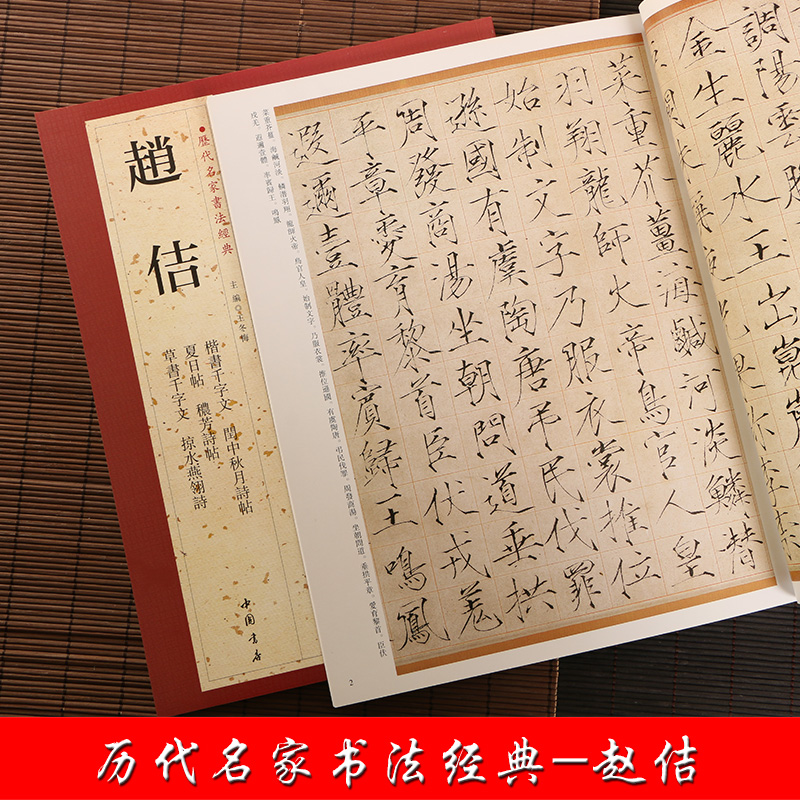 趙佶
歷代名家書法經典
主編◎王冬梅
楷書千字文 閏中秋月詩帖
夏日帖 穠芳詩帖
草書千字文 掠水燕翎詩
中国书店
調陽雲騰
金生麗水玉出
菜重芥薑海鹹河淡鱗潛
羽翔龍師火帝鳥官人皇
始制文字乃服衣裳推位
遜國有虞陶唐弔民伐罪
周發商湯坐朝問道垂拱
平章愛育黎首臣伏戎羌
遐邇壹體率賓歸王鳴鳳
菜重芥薑。海鹹河淡，鱗潛羽翔。龍師火帝，鳥官人皇。始制文字，乃服衣裳。推位遜國，有虞陶唐。弔民伐罪，周發商湯。坐朝問道，垂拱平章。愛育黎首，臣伏
戎羌。遐邇壹體，率賓歸王。鳴鳳
2
历代名家书法经典—赵佶